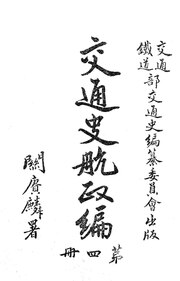 交通
鐵道
部交通史編纂委員會出版
交通史航政編
第四冊
關賡麟署